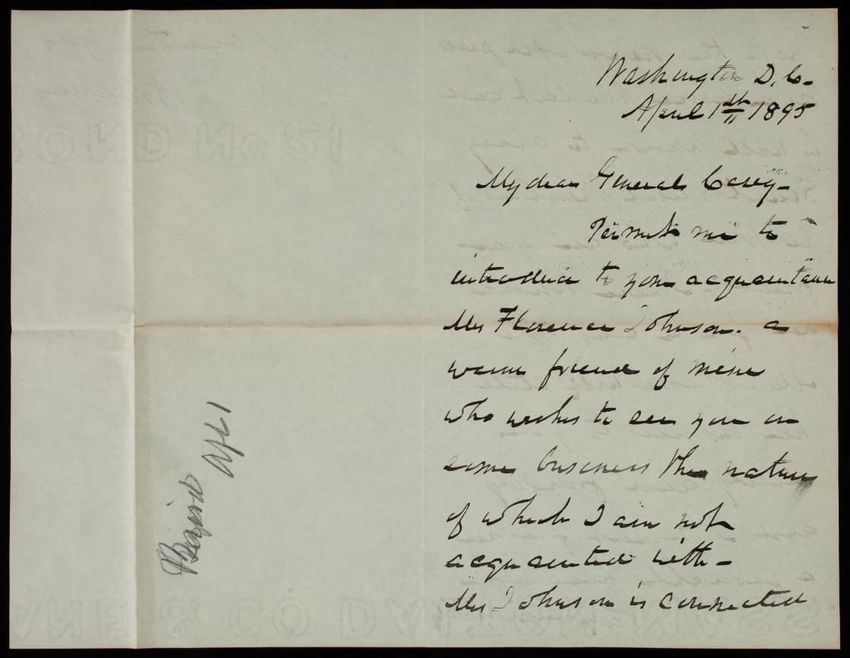 Washington D.C.
April 1st 1895
My dear General Casey-
Permit me to
introduce to your acquaintance
Mrs Florence Johnson. a
warm friend of mine
who wishes to see you on
some business the nature
of which I am not
acquainted with-
Mrs Johnson is connected
Baird
Apl 1